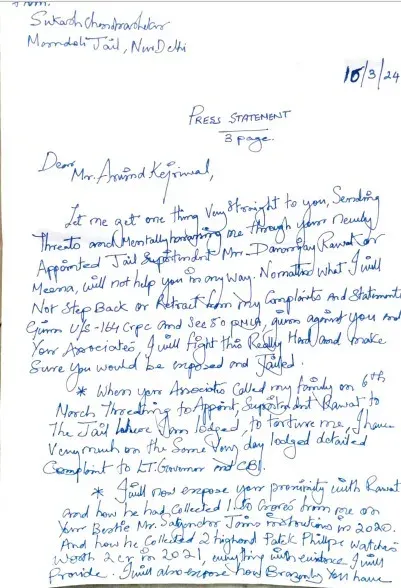 From:
Sukash Chandrashekar
Mandoli Jail, New Delhi
10/3/24
PRESS STATEMENT
3 page
Dear Mr. Arvind Kejriwal,
Let me get one thing Very Straight to you, Sending
Threats and Mentally harassing me through your newly
Appointed Jail Superintendent Mr. Rawat or
Meena, will not help you in any way. No matter what I will
Not Step Back or Retract from my Complaints And Statements
Given U/S-164 Crpc and Sec 50 PMLA, given against you and
Your Associates, I will fight this Really Hard and make
Sure you would be exposed and Jailed.
* When your Associates Called my family on 6th
March Threating to Appoint, Superintendent Rawat to
The Jail where I am lodged, to torture me, I have
Very much on the Same Very day lodged detailed
Complaint to LT. Governor and CBI.
* I will now expose your proximity with Rawat
and how he had Collected Crores from me on
Your Bestie Mr. Satyendar Jains instructions in 2020.
And how he Collected 2 highend Patek Phillipe watches
Worth 2 cr in 2021, with evidence I will
Provide. I will also expose how You have